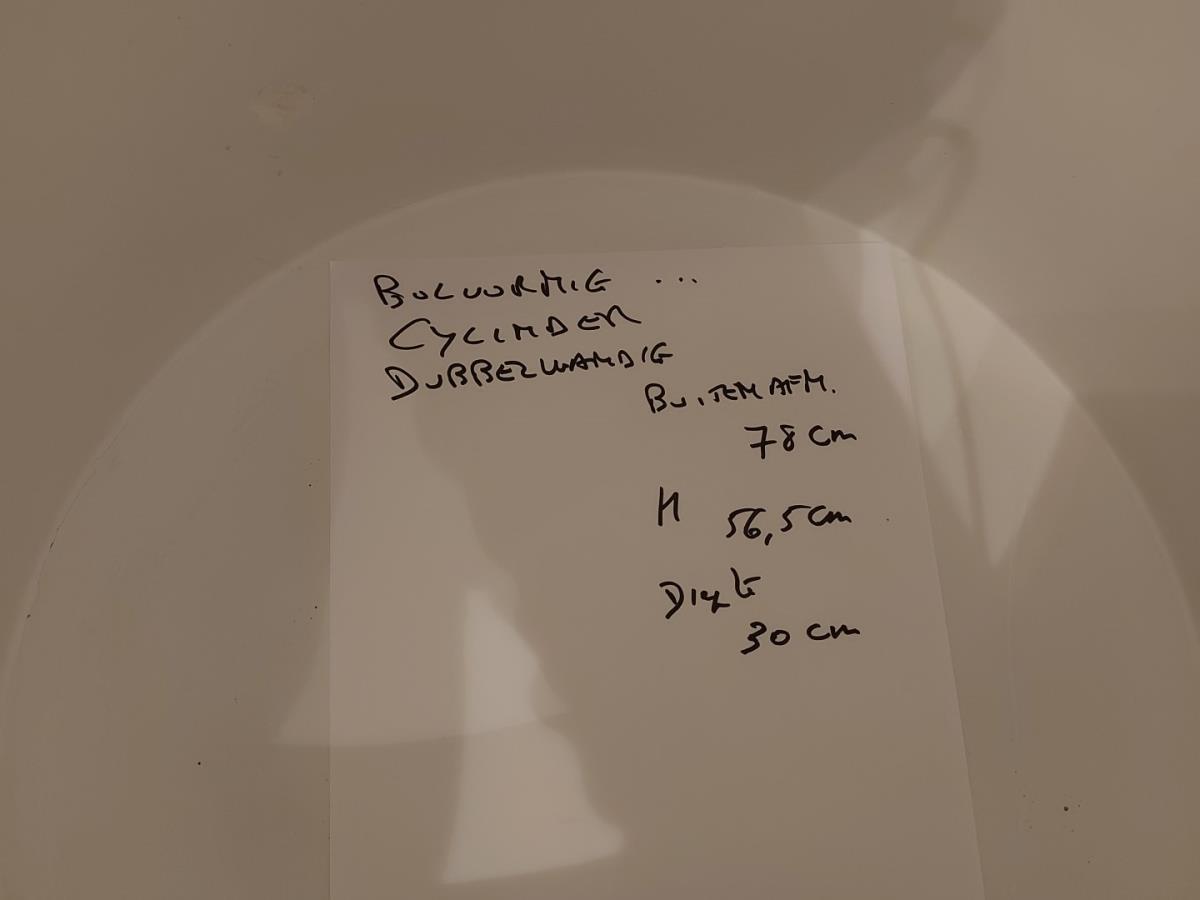 BOLVORMIG ...
CYLINDER
DUBBELWANDIG
BUITEN AFM.
78 cm
H 56,5 cm
30 cm